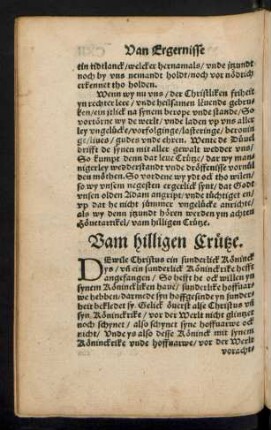 Van Ergernisse
ein tidtlanck / welcker hernamals / vnde itzundt
noch by vns nemandt holdt / noch vor nödrich
erkennet tho holden.
Wenn wy nu vns / der Christliken friheit
yn rechter leer / vnde heilsamen leuends gebru
ken / ein jtlick na synem berope vnde stande / So
vortörne wy de werlt / vnde laden vp vns aller
ley vngelücke / vorfolginge / lasteringe / berouin
ge / liues / gudes vnde ehren. Wente de Düuel
drifft de synen mit aller gewalt wedder vns /
So kumpt denn dat leue Crütze / dat wy man
nigerley wedderstandt vnde dröffenisse vornüf
den möthen. So vordene wy ydt ock tho wilen /
so wy vnsem negesten ergerlick synt / dat Godt
vnsen olden Adam angripe / vnde tüchtiget en /
vp dat he nicht sümmer vngelücke anrichte / als
wy denn itzundt hören werden ym achten
Höuetartikel / vam hilligen Crütze.
Vam hilligen Crütze.
DEwile Christus ein sunderlick Köninck
ys / vñ ein sunderlick Köninckrike hefft
angefangen / So hefft he ock willen yn
synem Köninckliken haue / sunderlike hoffuar
we hebben / darmede syn hoffgesinde yn sunder
heit bekledet sy. Gelick öuerst alse Christus vñ
syn Köninckrike / vor der Werlt nicht glintzet
noch schynet / also schynet syne hoffuarwe ock
nicht / Vnde ys also desse Köninck mit synem
Köninckrike vnde hoffuarwe / vor der Werlt
voracht-